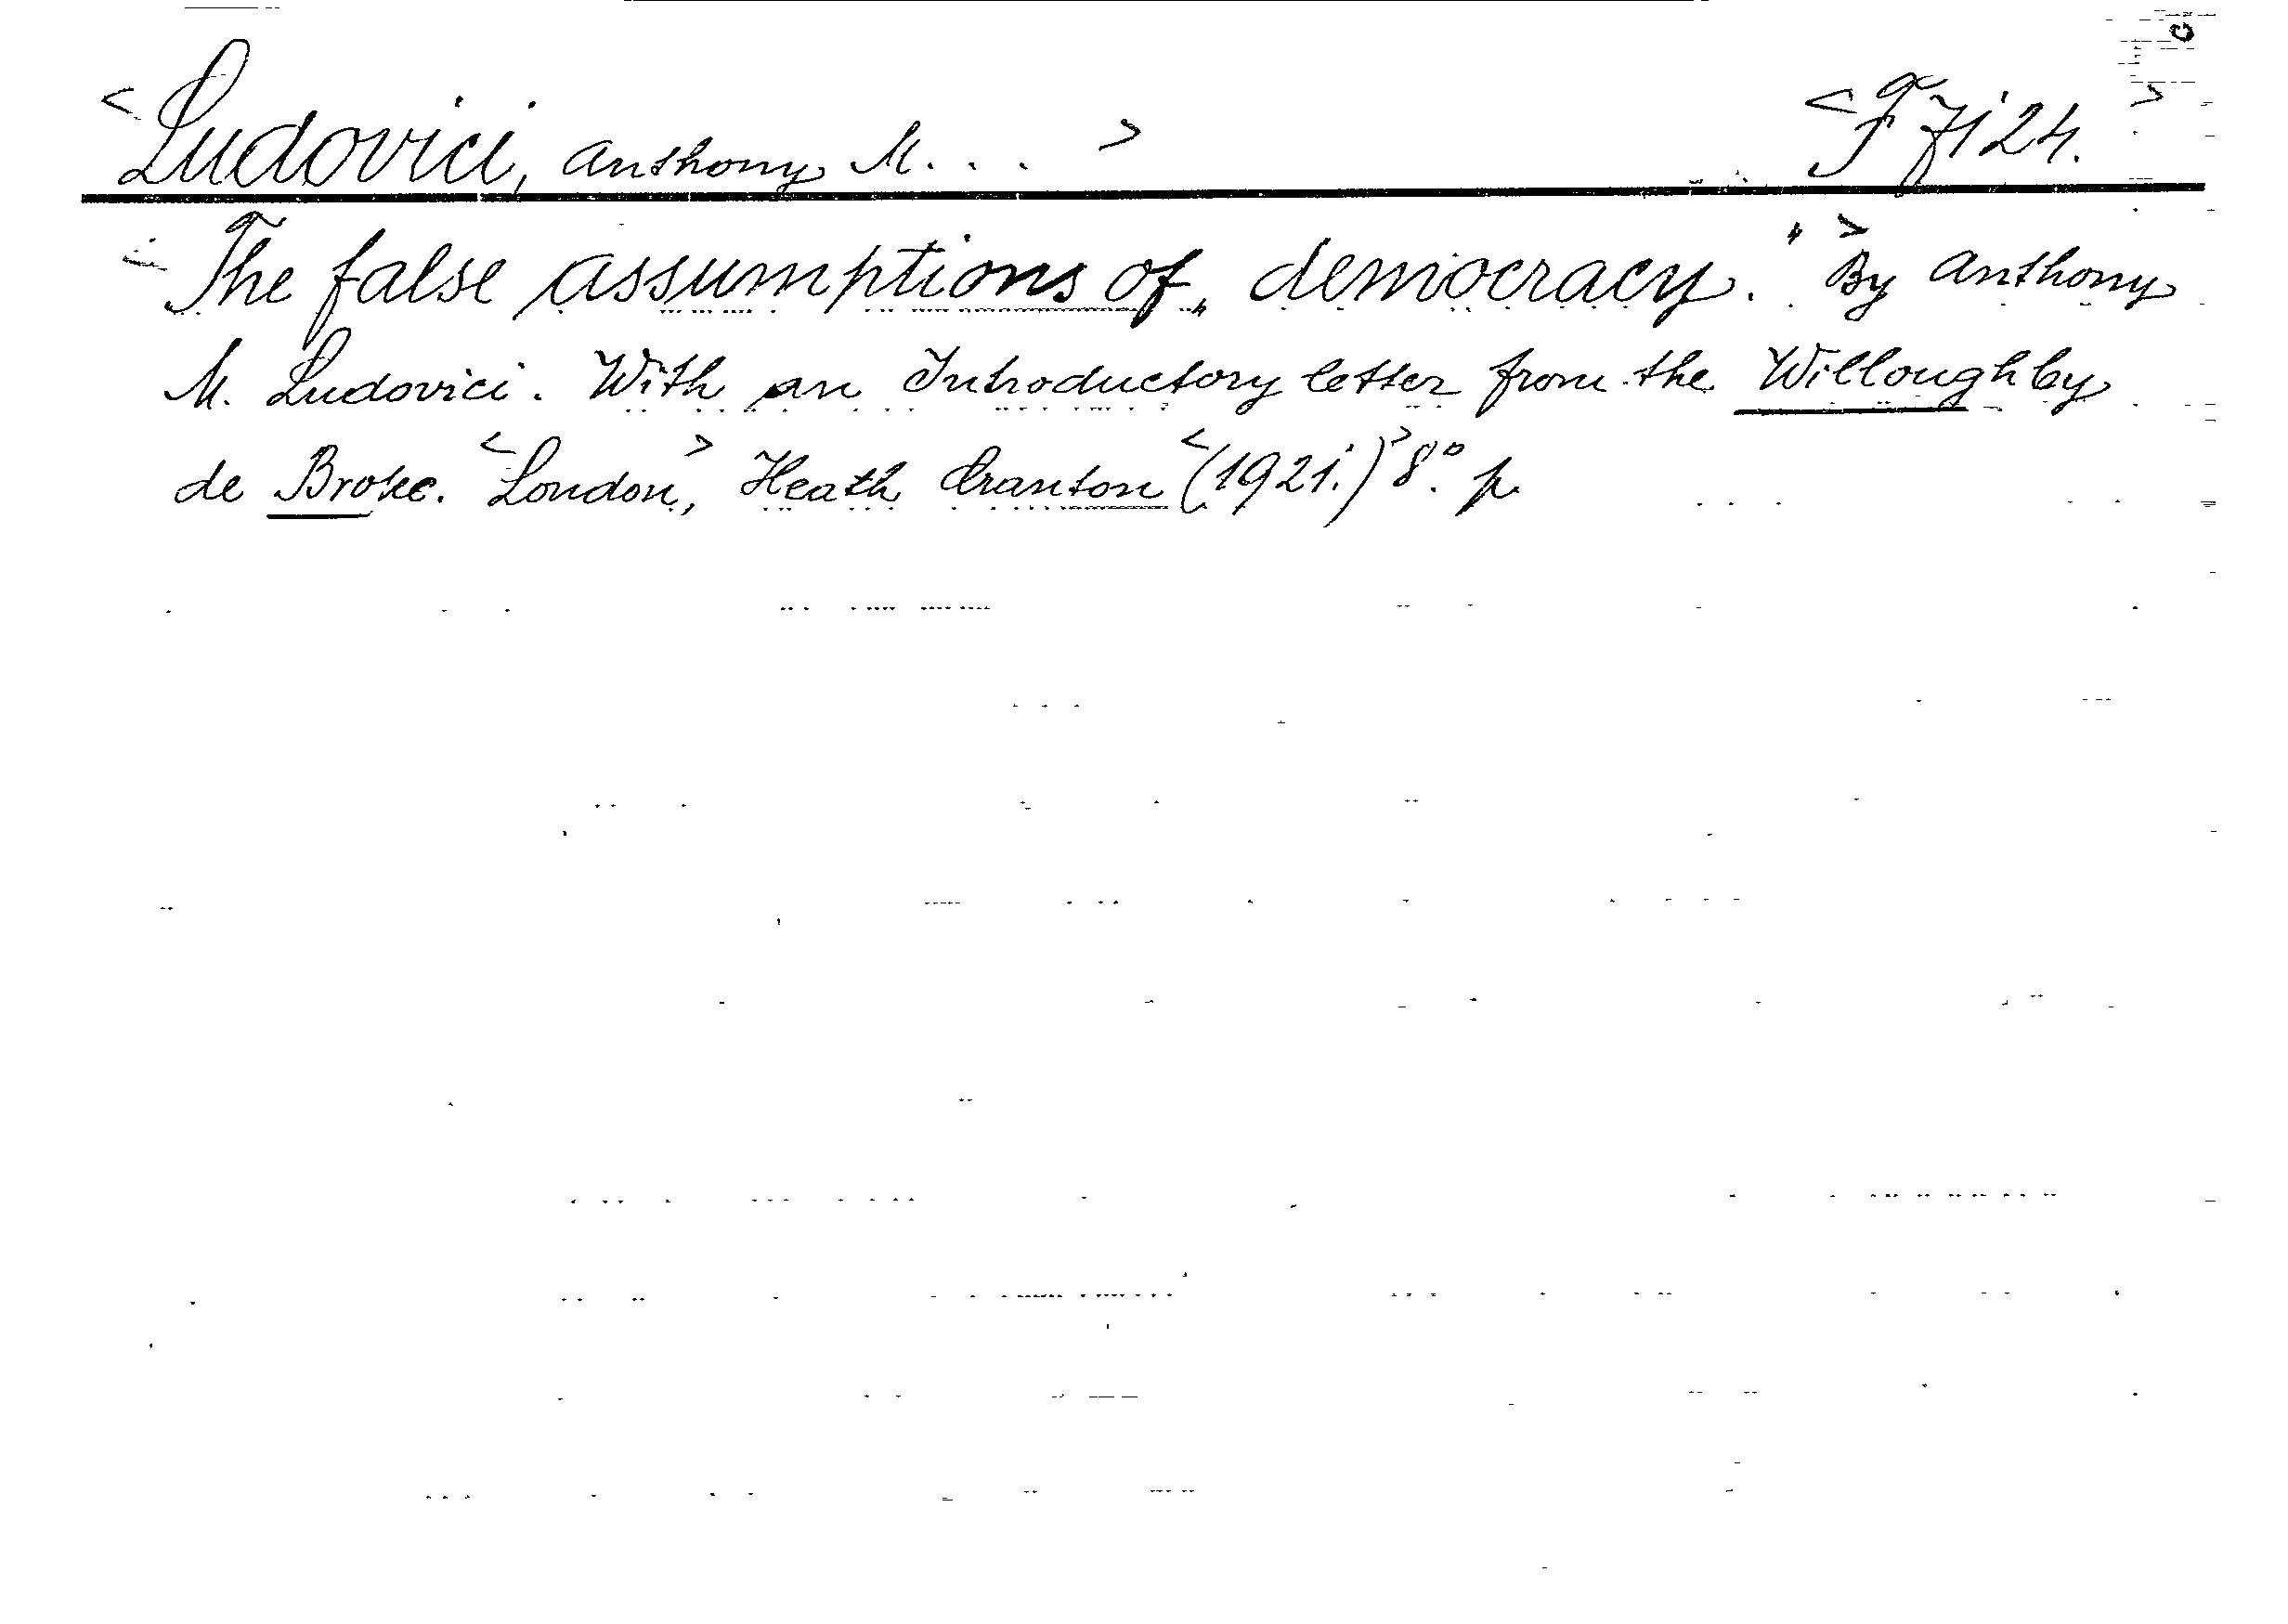 <Ludovici, Anthony M...> <F 7124.>
The false assumptions of „democracy." > By Anthony
M. Ludovici. With an Introductory letter from the Willoughby
de Broke. <London>, Heath Cranton <(1921.)> 8°. p